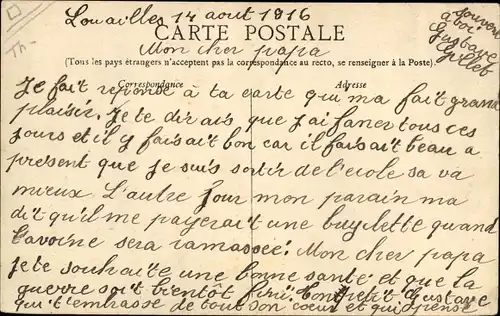 Louailles 14 aout 1916
souvenir
à toi
Gustave
CARTE POSTALE
Mon cher papa
(Tous les pays étrangers n'acceptent pas la correspondance au recto, se renseigner à la Poste).
Correspondance
Adresse
Je fait reponse à ta carte qui ma fait grand
plaisir. Je te dirais que j'ai faner tous ces
jours et il y faisait bon car il faisait beau a
present que je suis sortir de l'ecole sa va
mieux L'autre jour mon parain ma
dit qu'il me payerait une buyclette quand
l'avoine sera ramassée. Mon cher papa
je te souhaite une bonne santé et que la
guerre soit bientôt fini. Ton petit Gustave
qui t'embrasse de tout son cœur et qui pense